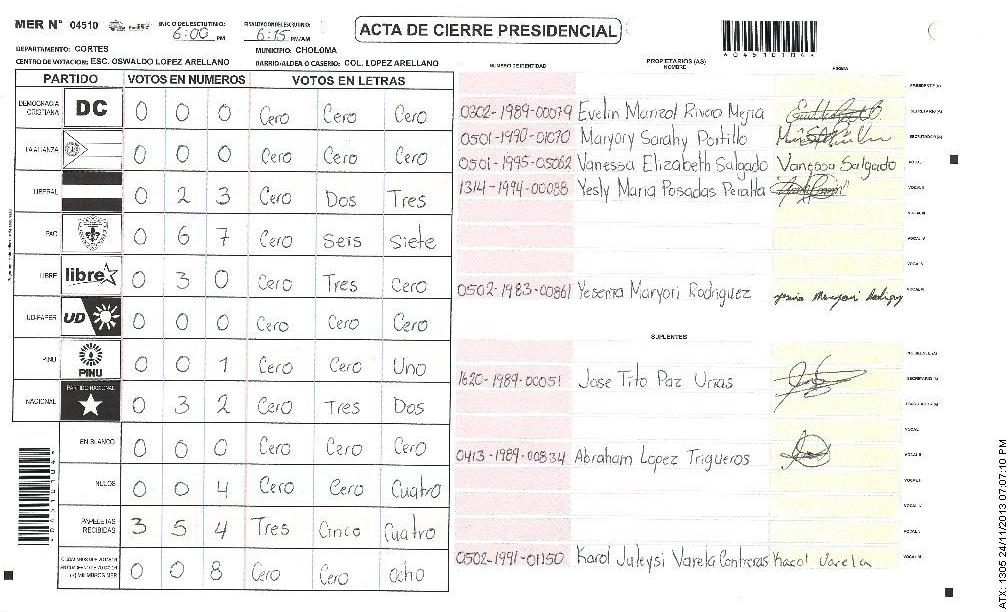 MER N° 04510 INICIO DE ESCRUTINIO: 6:00 PM FINALIZACION DE ESCRUTINIO: 6:15 PM/AM
ACTA DE CIERRE PRESIDENCIAL
DEPARTAMENTO: CORTES MUNICIPIO: CHOLOMA
CENTRO DE VOTACION: ESC. OSWALDO LOPEZ ARELLANO BARRIO/ALDEA O CASERIO: COL. LOPEZ ARELLANO
PARTIDO VOTOS EN NUMEROS VOTOS EN LETRAS
DEMOCRACIA CRISTIANA DC 0 0 0 Cero Cero Cero
LA ALIANZA 0 0 0 Cero Cero Cero
LIBERAL 0 2 3 Cero Dos Tres
PAC 0 6 7 Cero Seis Siete
LIBRE libre 0 3 0 Cero Tres Cero
UD-FAPER UD 0 0 0 Cero Cero Cero
PINU PINU 0 0 1 Cero Cero Uno
NACIONAL PARTIDO NACIONAL 0 3 2 Cero Tres Dos
EN BLANCO 0 0 0 Cero Cero Cero
NULOS 0 0 4 Cero Cero Cuatro
PAPELETAS RECIBIDAS 3 5 4 Tres Cinco Cuatro
(+) MIEMBROS MER 0 0 8 Cero Cero ocho
NUMERO DE IDENTIDAD PROPIETARIOS (AS) NOMBRE FIRMA
PRESIDENTE (A)
0202-1989-00079 Evelin Marizol Rivera Mejia SECRETARIO (A)
0501-1990-01070 Maryory Sarahy Portillo ESCRUTADOR (A)
0501-1995-05062 Vanessa Elizabeth Salgado Vanessa Salgado VOCAL I
1314-1994-00088 Yesly Maria Posadas Peralta VOCAL II
VOCAL III
VOCAL IV
VOCAL V
0502-1983-00861 Yesenia Maryori Rodriguez VOCAL VI
SUPLENTES
PRESIDENTE (A)
1620-1989-00051 Jose Tito Paz Urias SECRETARIO (A)
ESCRUTADOR (A)
VOCAL I
0413-1989-00834 Abraham Lopez Trigueros VOCAL II
VOCAL V
0502-1991-01150 Karol Juleysi Varela Contreras Karol Varela VOCAL VI
ATX: 1305 24/11/2013 07:07:10 PM